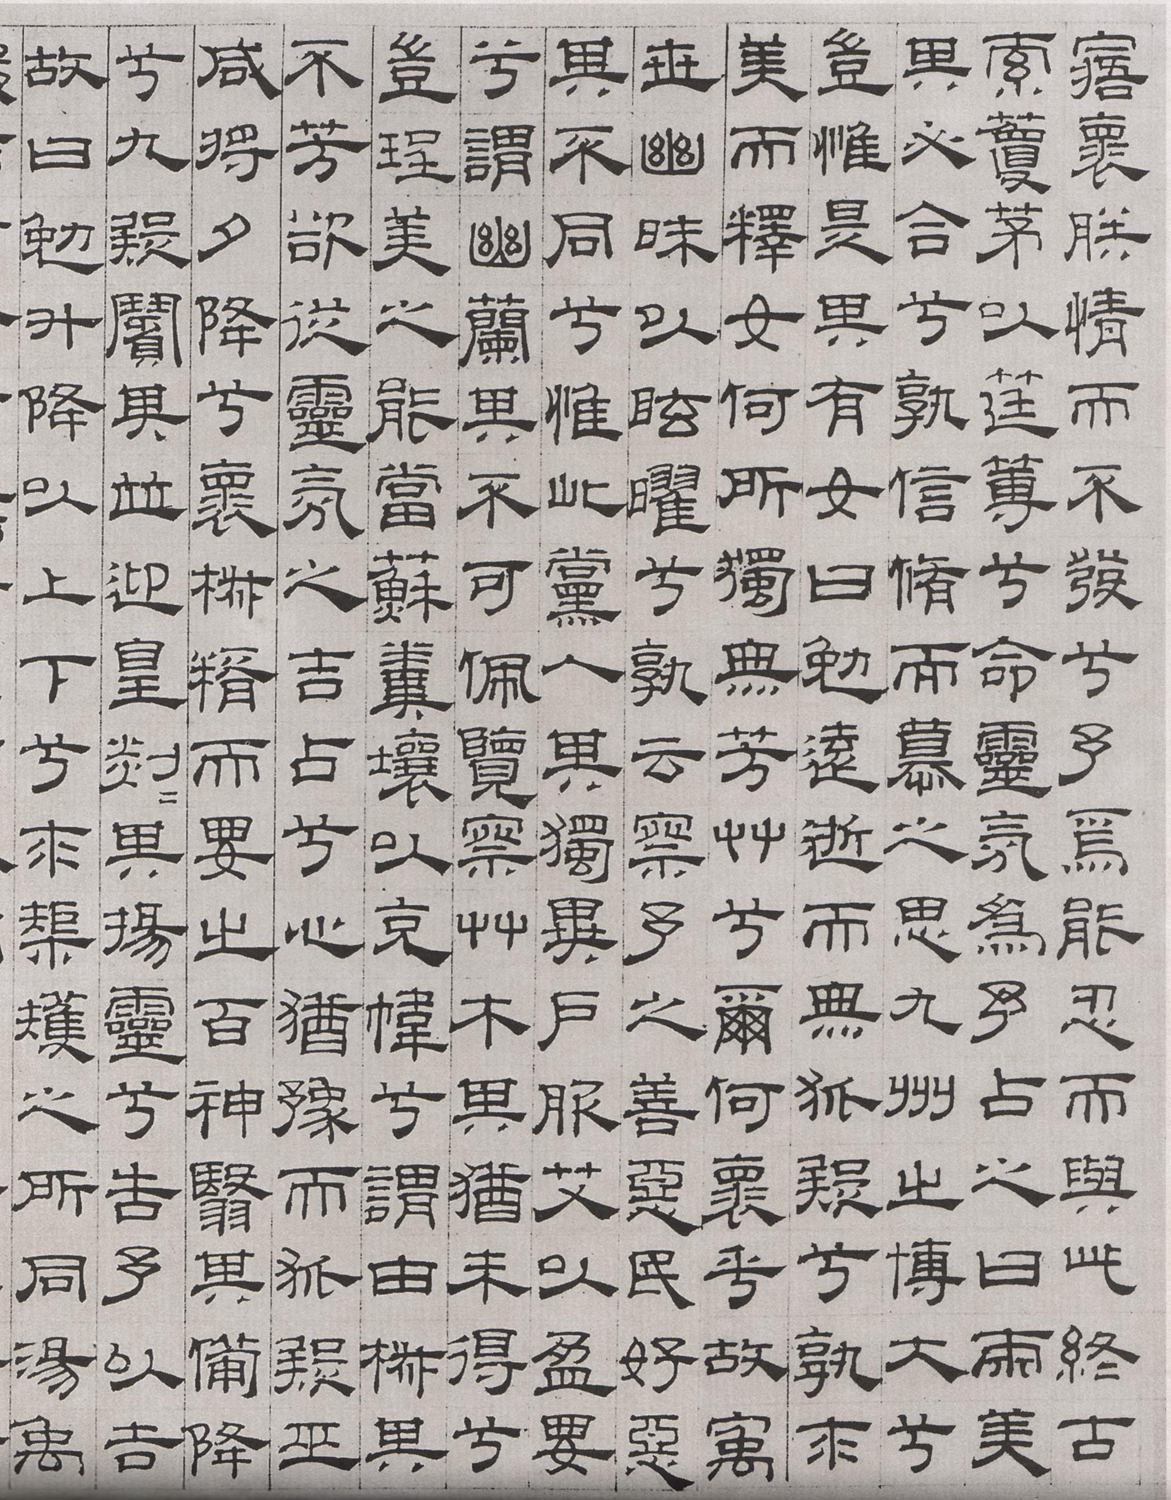 寤褱朕情而不發兮予焉能忍而與此終古
索藑茅以筳蓴兮命靈氛為予占之曰兩美
其必合兮孰信脩而慕之思九州之博大兮
豈惟是其有女曰勉遠逝而無狐疑兮孰求
美而釋女何所獨無芳艸兮爾何褱乎故寓
世幽昧以眩曜兮孰云察予之善惡民好惡
其不同兮惟此黨人其獨異戶服艾以盈要
兮謂幽蘭其不可佩覽察艸木其猶未得兮
豈珵美之能當蘇糞壤以充幃兮謂申椒其
不芳欲從靈氛之吉占兮心猶豫而狐疑巫
咸將夕降兮褱椒糈而要之百神翳其備降
兮九疑繽其並迎皇剡〻其揚靈兮告予以吉
故曰勉升降以上下兮求榘矱之所同湯禹